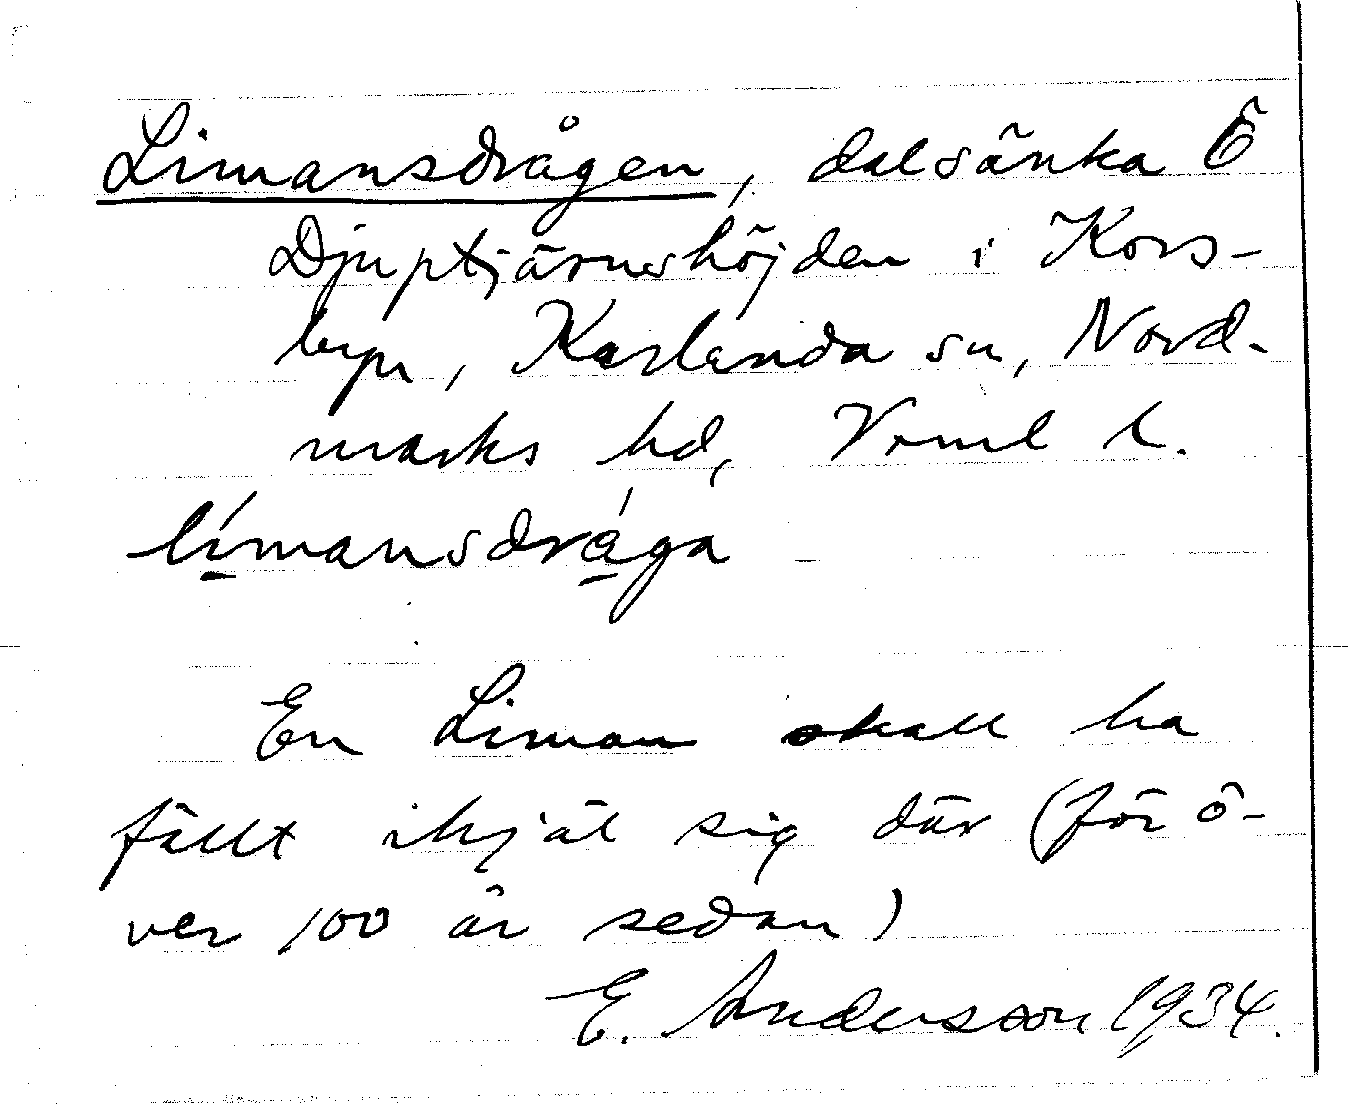 Limansdrågen, dalsänka Ö
Djuptjärneshöjden i Kors-
byn, Karlanda sn, Nord-
marks hd, Vrml l.
límansdrága
En Liman skall ha
fällt ihjäl sig där (för ö-
ver 100 år sedan)
E. Andersson 1934.